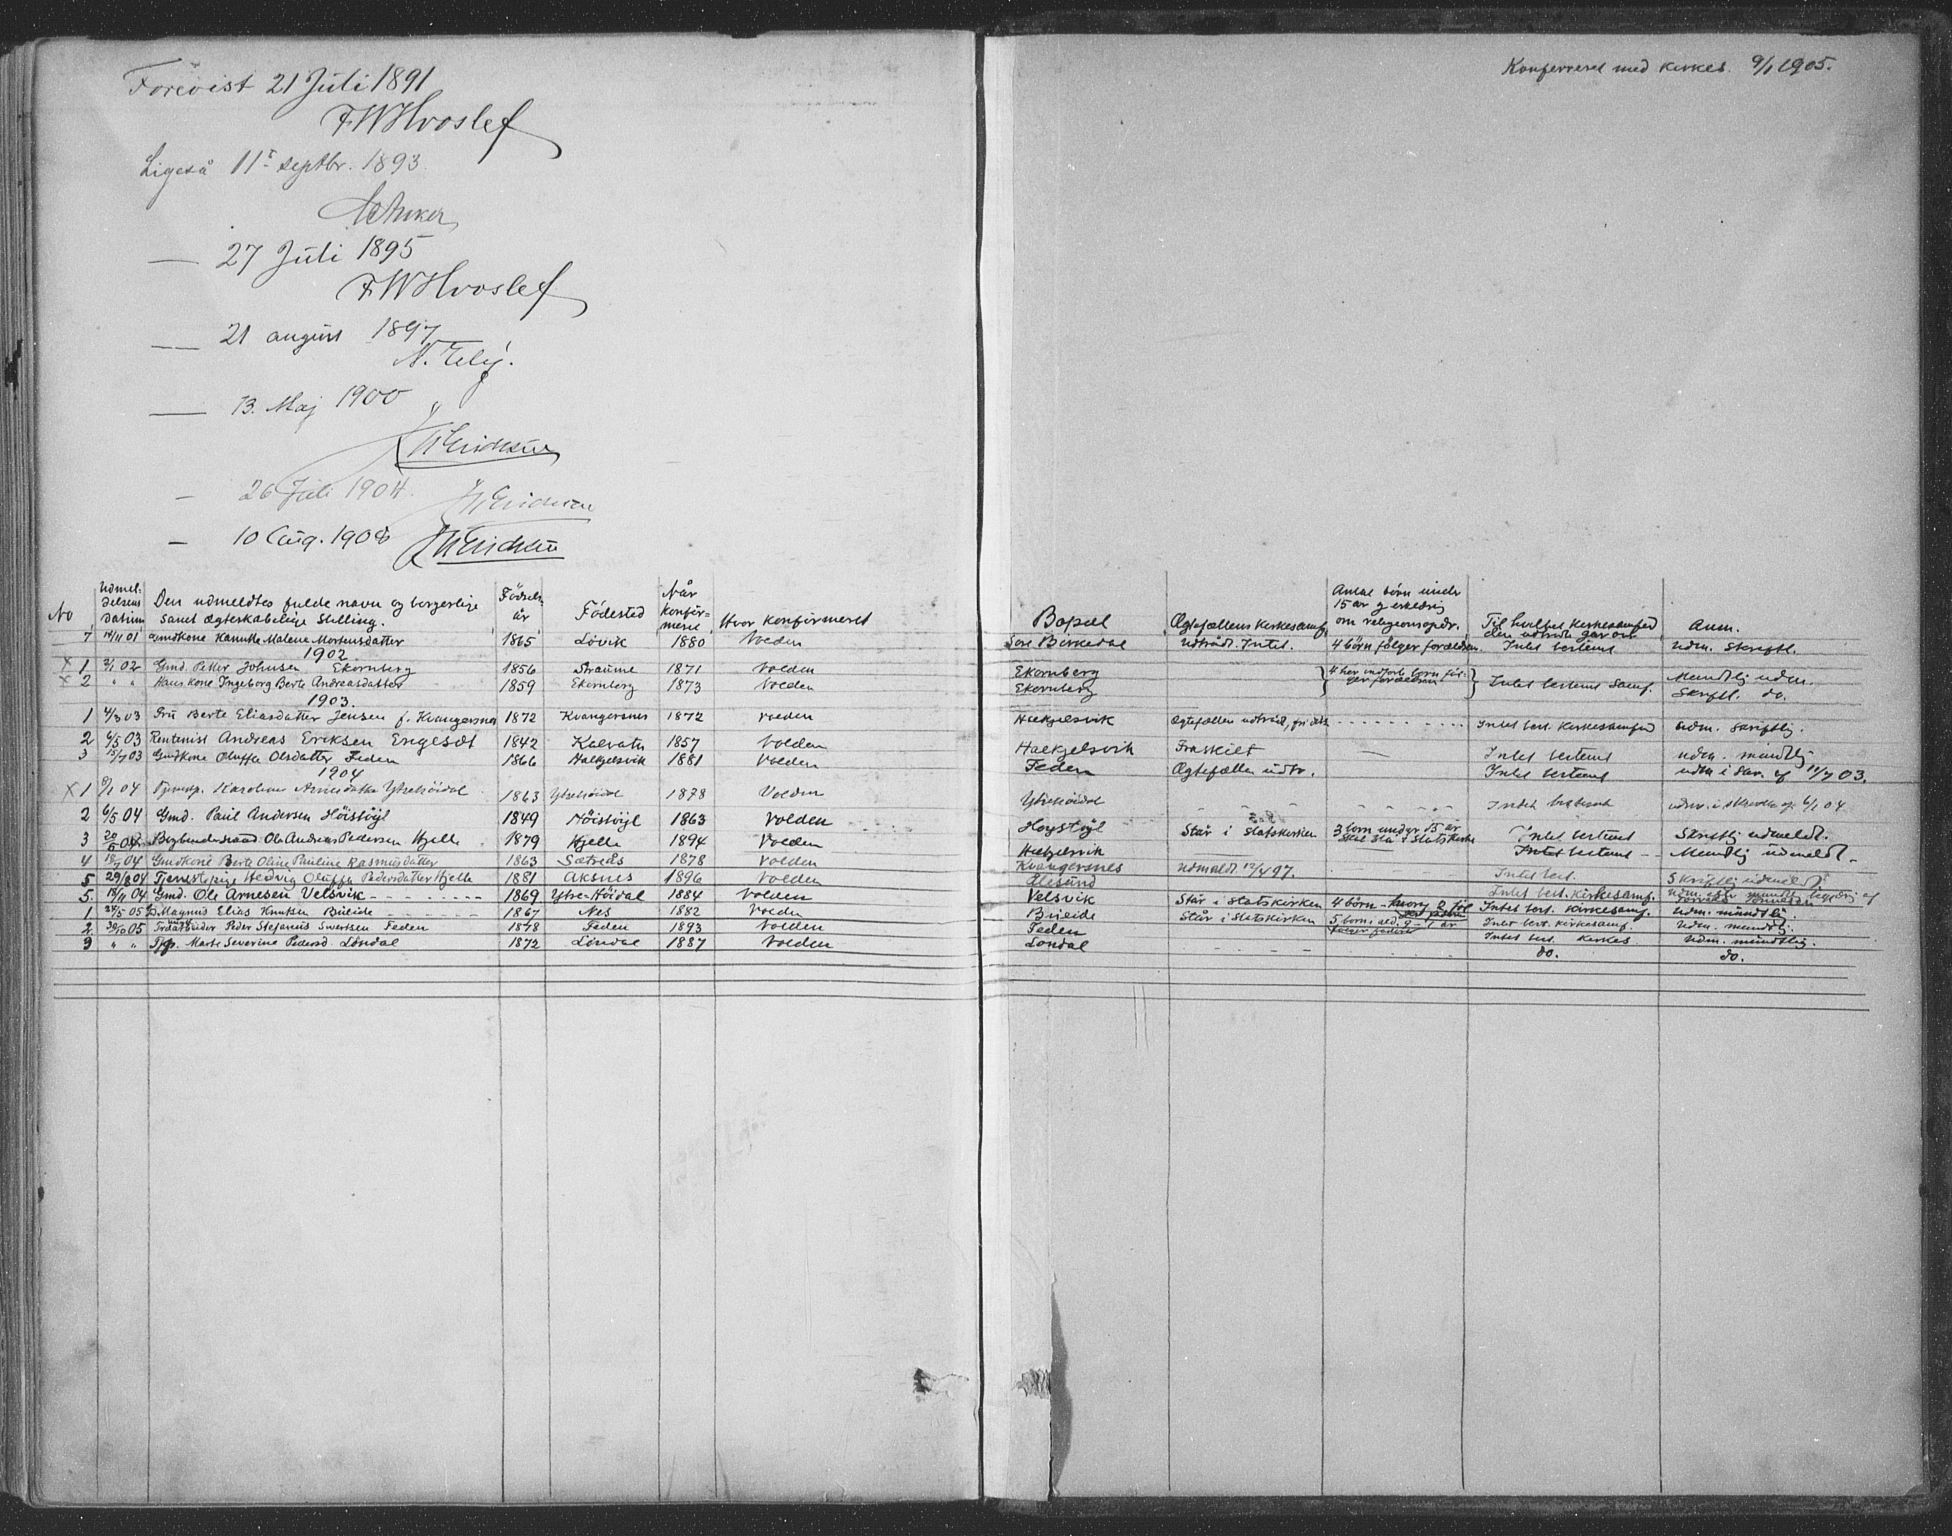 Forevist 21 Juli 1891
FWHvoslef
Ligeså 11te septbr. 1893.
— 27 Juli 1895
FWHvoslef
— 21 august 1897
— 13. Maj 1900
— 26 Juli 1904
— 10 Aug. 1908
Konfereret med kirkes. 9/1 1905.
No Udmeldelsens Datum Den udmeldtes fulde navn og borgerlige samt ægteskabelige Stilling. Födsels år Födested Når konfirmeret Hvor konfirmeret Bopæl Ægtefællens Kirkesamf. Antal börn under 15 år og erklæring om religionsopdr. Til hvilket Kirkesamfund den udtrædte går over Anm.
7 14/11 01 Gmdkone Malene Mortensdatter 1865 Lövik 1880 Volden Birkedal Udtrådt. Intet. 4 börn fölger forældren. Intet bestemt Udm. skriftl.
1902
x 1 2/1 02 Gmd. Petter Johnsen Ekornberg 1856 Straume 1871 Volden Ekornberg Mundtlig udm.
x 2 " " Hans kone Ingeborg Berte Andreasdatter 1859 Ekornberg 1873 Volden Ekornberg Intet bestemt Samf. Skriftl. do.
1903.
1 4/3 03 Fru Berte Eliasdatter Jensen f. Kvangersnes 1872 Kvangersnes 1872 Volden Hækjelsvik Ægtefællen udtrådt, Intet best. Kirkesamfund Udm. skriftlig.
2 6/5 03 Rentenist Andreas Eriksen Engeset 1842 Kalvatn 1857 Volden Hækjelsvik Fraskilt — Intet bestemt udm. mundtlig
3 15/7 03 Gmdkone Oluffa Olsdatter Feden 1866 Hækjelsvik 1881 Volden Feden Ægtefællen udtr. Intet bestemt 11/7 03.
1904
x 1 6/1 04 Tjenestp. Karoline Ytrehöidal 1863 Ytrehöidal 1878 Volden Ytrehöidal Intet bestemt 6/1 04
2 6/5 04 Gmd. Paul Andersen Höistöyl 1849 Höistöyl 1863 Volden Höystöyl Står i Statskirken 3 born under 15 år skal stå i Statskirke Intet bestemt Skriftlig udmeldt.
3 Ole Andreas Pedersen Hjelle 1879 Hjelle 1894 Volden Hækjelsvik Intet bestemt — Mundtlig udmeldt.
4 18/7 04 Gmdkone Berte Oline Pauline Rasmusdatter 1863 Sætreås 1878 Volden Kvangersnes Udmeldt 12/4 97. Intet best. Skriftlig udmeldt
5 29/8 04 Tjenestepige Hedvig Oluffa Pedersdatter Hjelle 1881 Aksnes 1896 Volden Ålesund Intet best. Kirkesamf.
5. 18/11 04 Gmd. Ole Arnesen Velsvik 1869 Ytre-Höidal 1884 Volden Velsvik Står i Statskirken 4 börn Intet best. Kirkesamf. Udm. mundtlig.
1 24/5 05 Magnus Elias Knutsen Bueide 1867 Nes 1882 Volden Bueide Står i Statskirken 5 born Intet best. Kirkesamf. Udm. mundtlig.
2 30/10 05 Peder Stefanus Sivertsen Feden 1878 Feden 1893 Volden Feden Intet best. Kirkes. Udm. mundtlig.
3 " " Tjp. Marte Severine Pedersd Löndal 1872 Löndal 1887 Volden Löndal do. do.